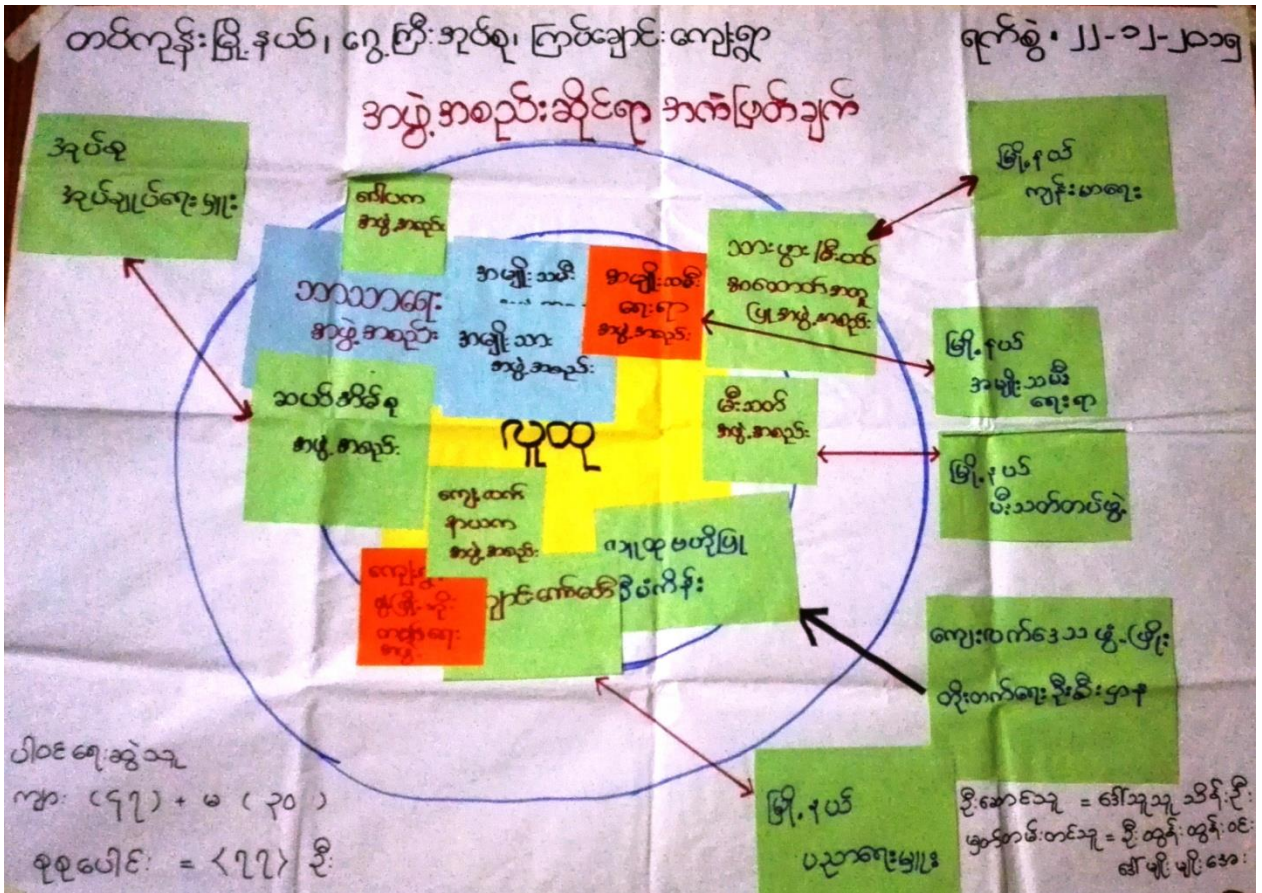 တပ်ကုန်းမြို့နယ်၊ ရွှေကြီးအုပ်စု၊ ကြပ်ချောင်းကျေးရွာ
ရက်စွဲ၊ ၂၂-၁၂-၂၀၁၅
အဖွဲ့အစည်းဆိုင်ရာ အကဲဖြတ်ချက်
အုပ်စု
အုပ်ချုပ်ရေးမှူး
ဂေါပက
အဖွဲ့အစည်း
ဘာသာရေး
အဖွဲ့အစည်း
အမျိုးသမီး
အမျိုးသား
အဖွဲ့အစည်း
အမျိုးသမီး
ရေးရာ
အဖွဲ့အစည်း
သားဖွား/မီးယပ်
အထောက်အကူ
ပြုအဖွဲ့အစည်း
မြို့နယ်
ကျန်းမာရေး
မြို့နယ်
အမျိုးသမီး
ရေးရာ
ဆယ်အိမ်စု
အဖွဲ့အစည်း
လူထု
မီးသတ်
အဖွဲ့အစည်း
မြို့နယ်
မီးသတ်တပ်ဖွဲ့
နာယက
အဖွဲ့အစည်း
ဗဟိုပြု
စီမံကိန်း
ကျောင်းကော်မတီ
ကျေးလက်ဒေသ ဖွံ့ဖြိုး
တိုးတက်ရေးဦးစီးဌာန
မြို့နယ်
ပညာရေးမှူး
ပါဝင်ရေးဆွဲသူ
ကျား (၄၇) + မ (၃၀)
စုစုပေါင်း = (၇၇) ဦး
ဦးဆောင်သူ = ဒေါ်သူသူသိန်းဦး
မှတ်တမ်းတင်သူ = ဦးထွန်းထွန်းဝင်း
ဒေါ်မျိုးမျိုးအေး